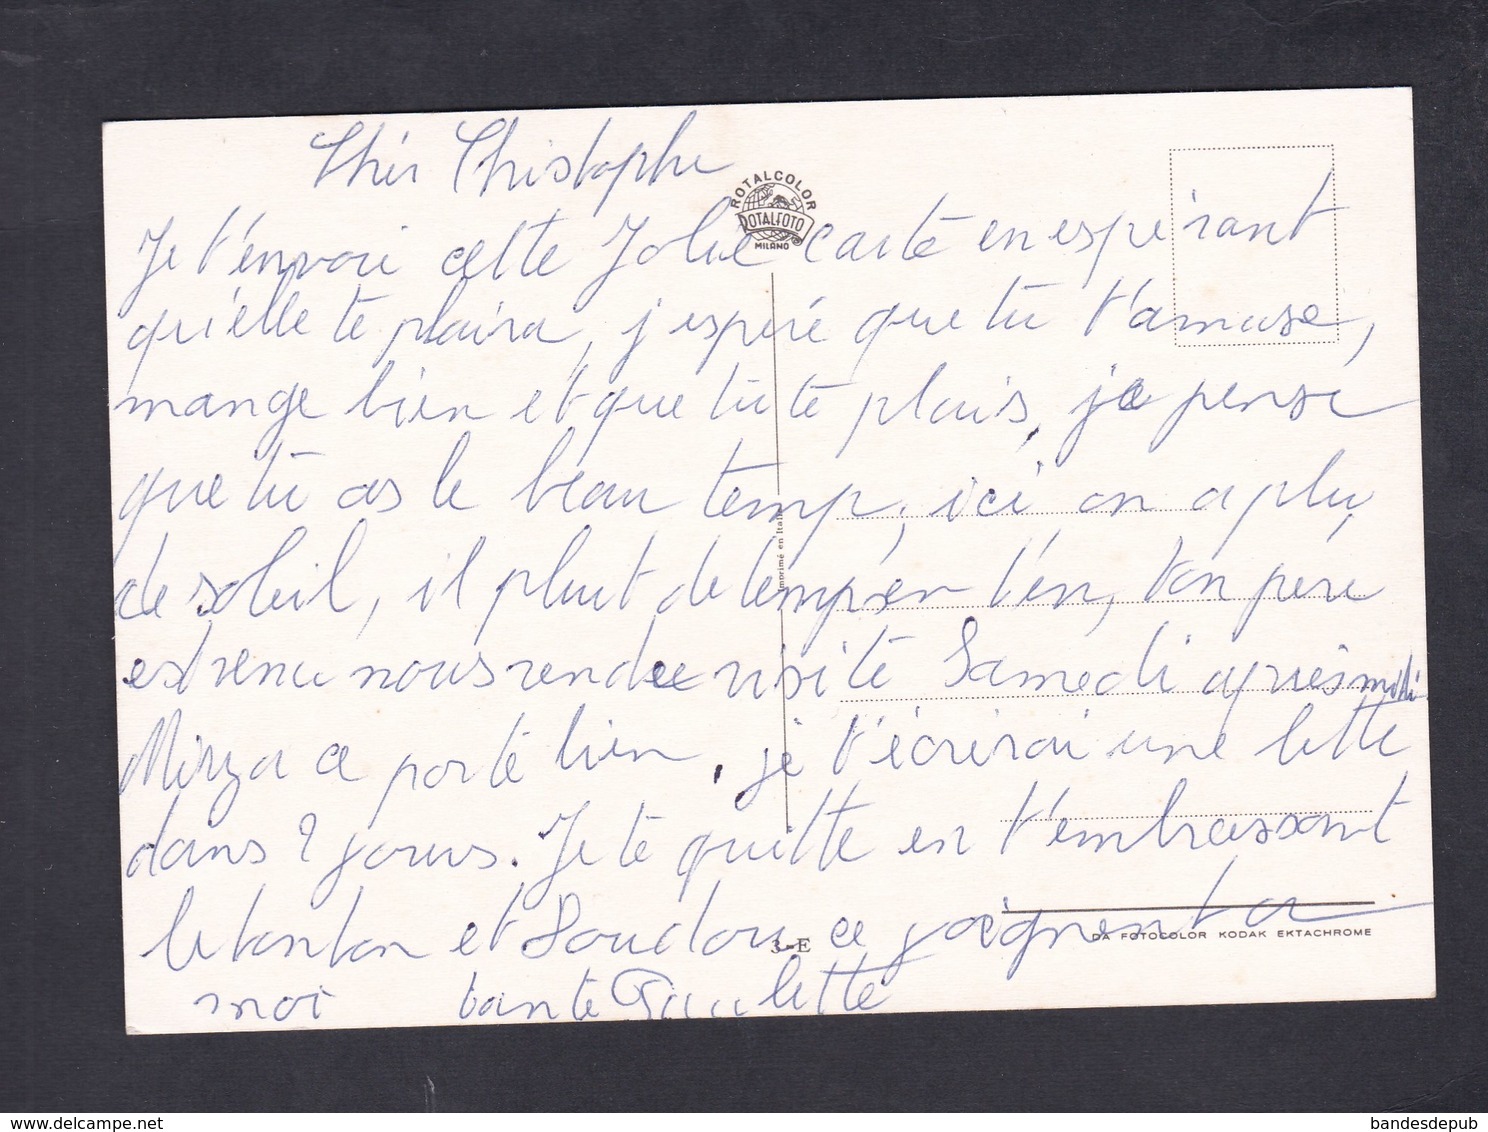 Chér Christophe
ROTALCOLOR
ROTALFOTO
MILANO
Je t'envoie cette Jolie carte en espérant
qu'elle te plaira, j'espère que tu t'amuse,
mange bien et que tu te plais, je pense
que tu as le beau temp, ici on a plu
de soleil, il pleut de temp en t'en, ton père
est venu nous rendre visite Samedi après midi
Mirza ce porte bien, je t'écrirai une lettre
dans 2 jours. Je te quitte en t'embrassant
le tonton et Doudou ce joignent a
moi tante Paulette
Imprimé en Italie
3-E
DA FOTOCOLOR KODAK EKTACHROME
bandesdepub